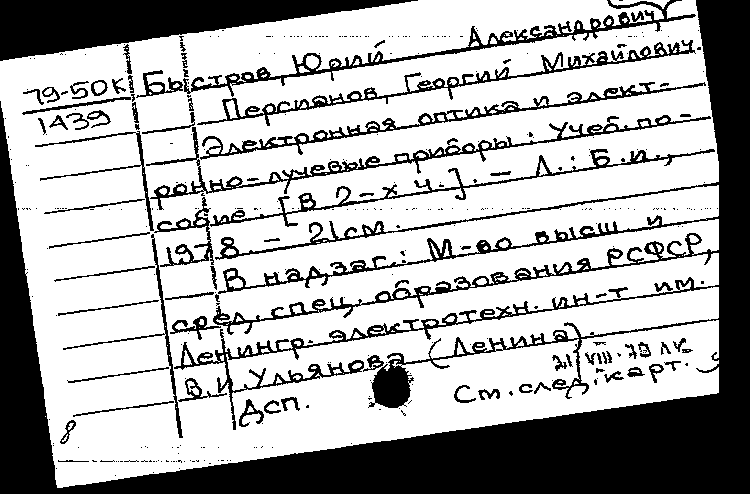 79-50К
1439
Быстров, Юрий Александрович,
Персианов, Георгий Михайлович.
Электронная оптика и элект-
ронно-лучевые приборы: Учеб. по-
собие. [В 2-х ч.]. – Л.: Б.и.,
1978 – 21см.
В надзаг.: М-во высш и
сред. спец. образования РСФСР,
Ленингр. электротехн. ин-т им.
В.И. Ульянова (Ленина).
21/VIII-79
Дсп. См. след. карт.
8